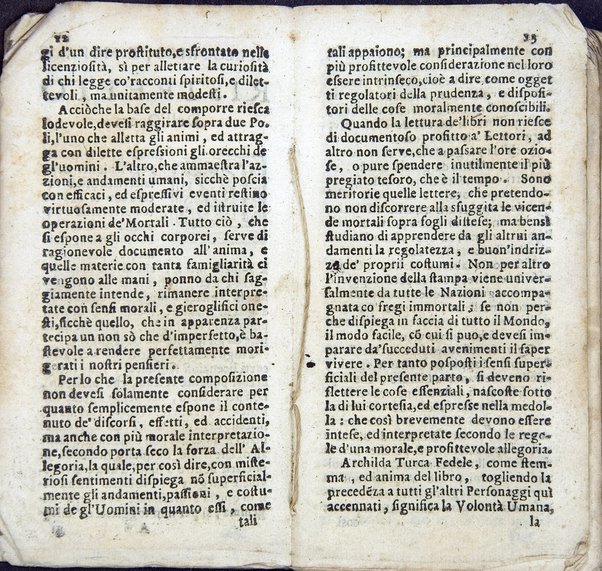 12
gi d'un dire prostituto, e sfrontato nella
licenziosità, sì per allettare la curiosità
di chi legge co'racconti spiritosi, e dilet-
tevoli, ma unitamente modesti.
Acciòche la base del comporre riesca
lodevole, devesi raggirare sopra due Po-
li, l'uno che alletta gli animi, ed attrag-
ga con dilette espressioni gli orecchi de
gl'uomini. L'altro, che ammaestra l'az-
zioni, e andamenti umani, sicchè poscia
con efficaci, ed espressivi eventi restino
virtuosamente moderate, ed istruite le
operazioni de'Mortali. Tutto ciò, che
si espone a gli occhi corporei, serve di
ragionevole documento all'anima, e
quelle materie con tanta famigliarità ci
vengono alle mani, ponno da chi sag-
giamente intende, rimanere interpre-
tate con sensi morali, e gieroglifici one-
sti, sicchè quello, che in apparenza par-
tecipa un non sò che d'imperfetto, è ba-
stevole a rendere perfettamente mori-
gerati i nostri pensieri.
Perlo che la presente composizione
non devesi solamente considerare per
quanto semplicemente espone il conte-
nuto de' discorsi, effetti, ed accidenti,
ma anche con più morale interpretazio-
ne, secondo porta seco la forza dell' Al-
legoria, la quale, per così dire, con miste-
riosi sentimenti dispiega nõ superficial-
mente gli andamenti, passioni, e costu-
mi de gl'Uomini in quanto essi, come
tali
tali appaiono; ma principalmente con
più profittevole considerazione nel loro
essere intrinseco, cioè a dire come ogget
ti regolatori della prudenza, e disposi-
tori delle cose moralmente conoscibili.
Quando la lettura de'libri non riesce
di documentoso profitto a' Lettori, ad
altro non serve, che a passare l'ore ozio-
se, o pure spendere inutilmente il più
pregiato tesoro, che è il tempo. Sono
meritorie quelle lettere, che pretendo-
no non discorrere alla sfuggita le vicen-
de mortali sopra fogli distese; ma bensì
studiano di apprendere da gli altrui an-
damenti la regolatezza, e buon'indriz-
zo de' proprii costumi. Non per altro
l'invenzione della stampa viene univer-
salmente da tutte le Nazioni accompa-
gnata co fregi immortali; se non per-
che dispiega in faccia di tutto il Mondo,
il modo facile, cõ cui si puo, e devesi im-
parare da'succeduti avenimenti il saper
vivere. Per tanto posposti i sensi super-
ficiali del presente parto, si deveno ri-
flettere le cose essenziali, nascoste sotto
la di lui cortesia, ed espresse nella medol-
la: che così brevemente devono essere
intese, ed interpretate secondo le rego-
le d'una morale, e profittevole allegoria.
Archilda Turca Fedele, come stem-
ma, ed anima del libro, togliendo la
precedẽza a tutti gl'altri Personaggi quì
accennati, significa la Volontà Umana,
la